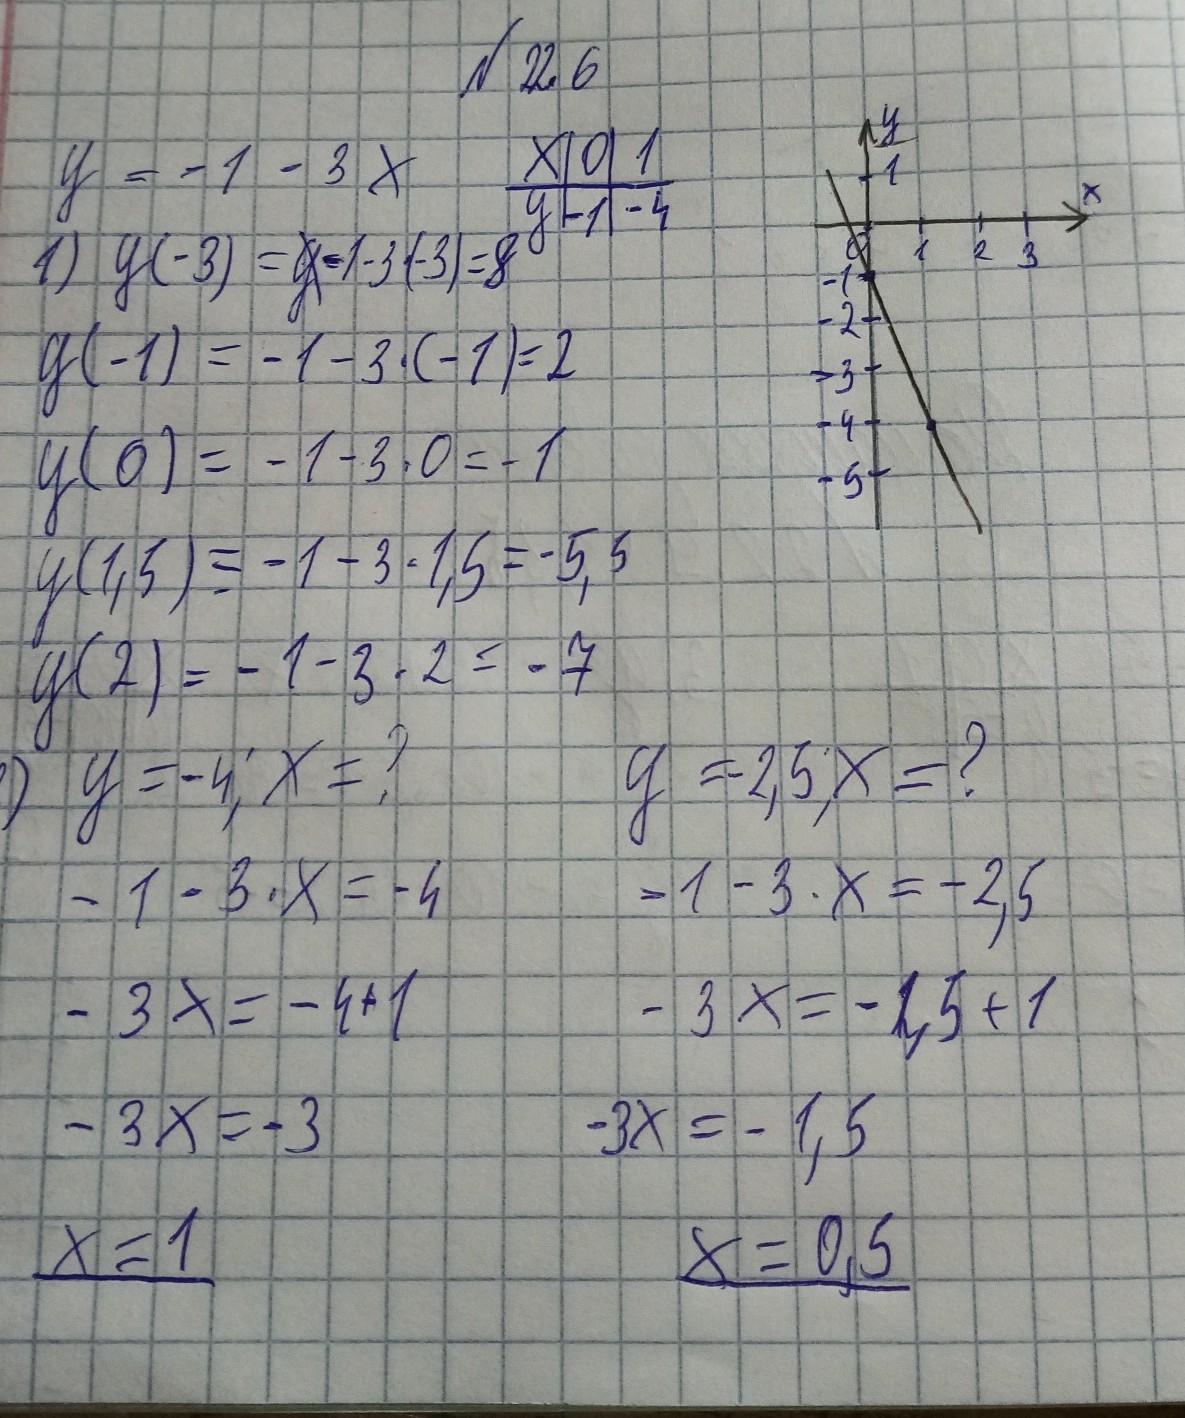 № 226
y = -1 - 3x
x | 0 | 1
y | -1 | -4
1) y(-3) = -1-3(-3)=8
y(-1) = -1-3·(-1)=2
y(0) = -1-3·0=-1
y(1,5) = -1-3·1,5=-5,5
y(2) = -1-3·2 = -7
) y=-4; x=?
-1-3·x=-4
-3x=-4+1
-3x=-3
x=1
y=-2,5; x=?
-1-3·x=-2,5
-3x=-2,5+1
-3x=-1,5
x=0,5
y
1
x
0 1 2 3
-1
-2
-3
-4
-5